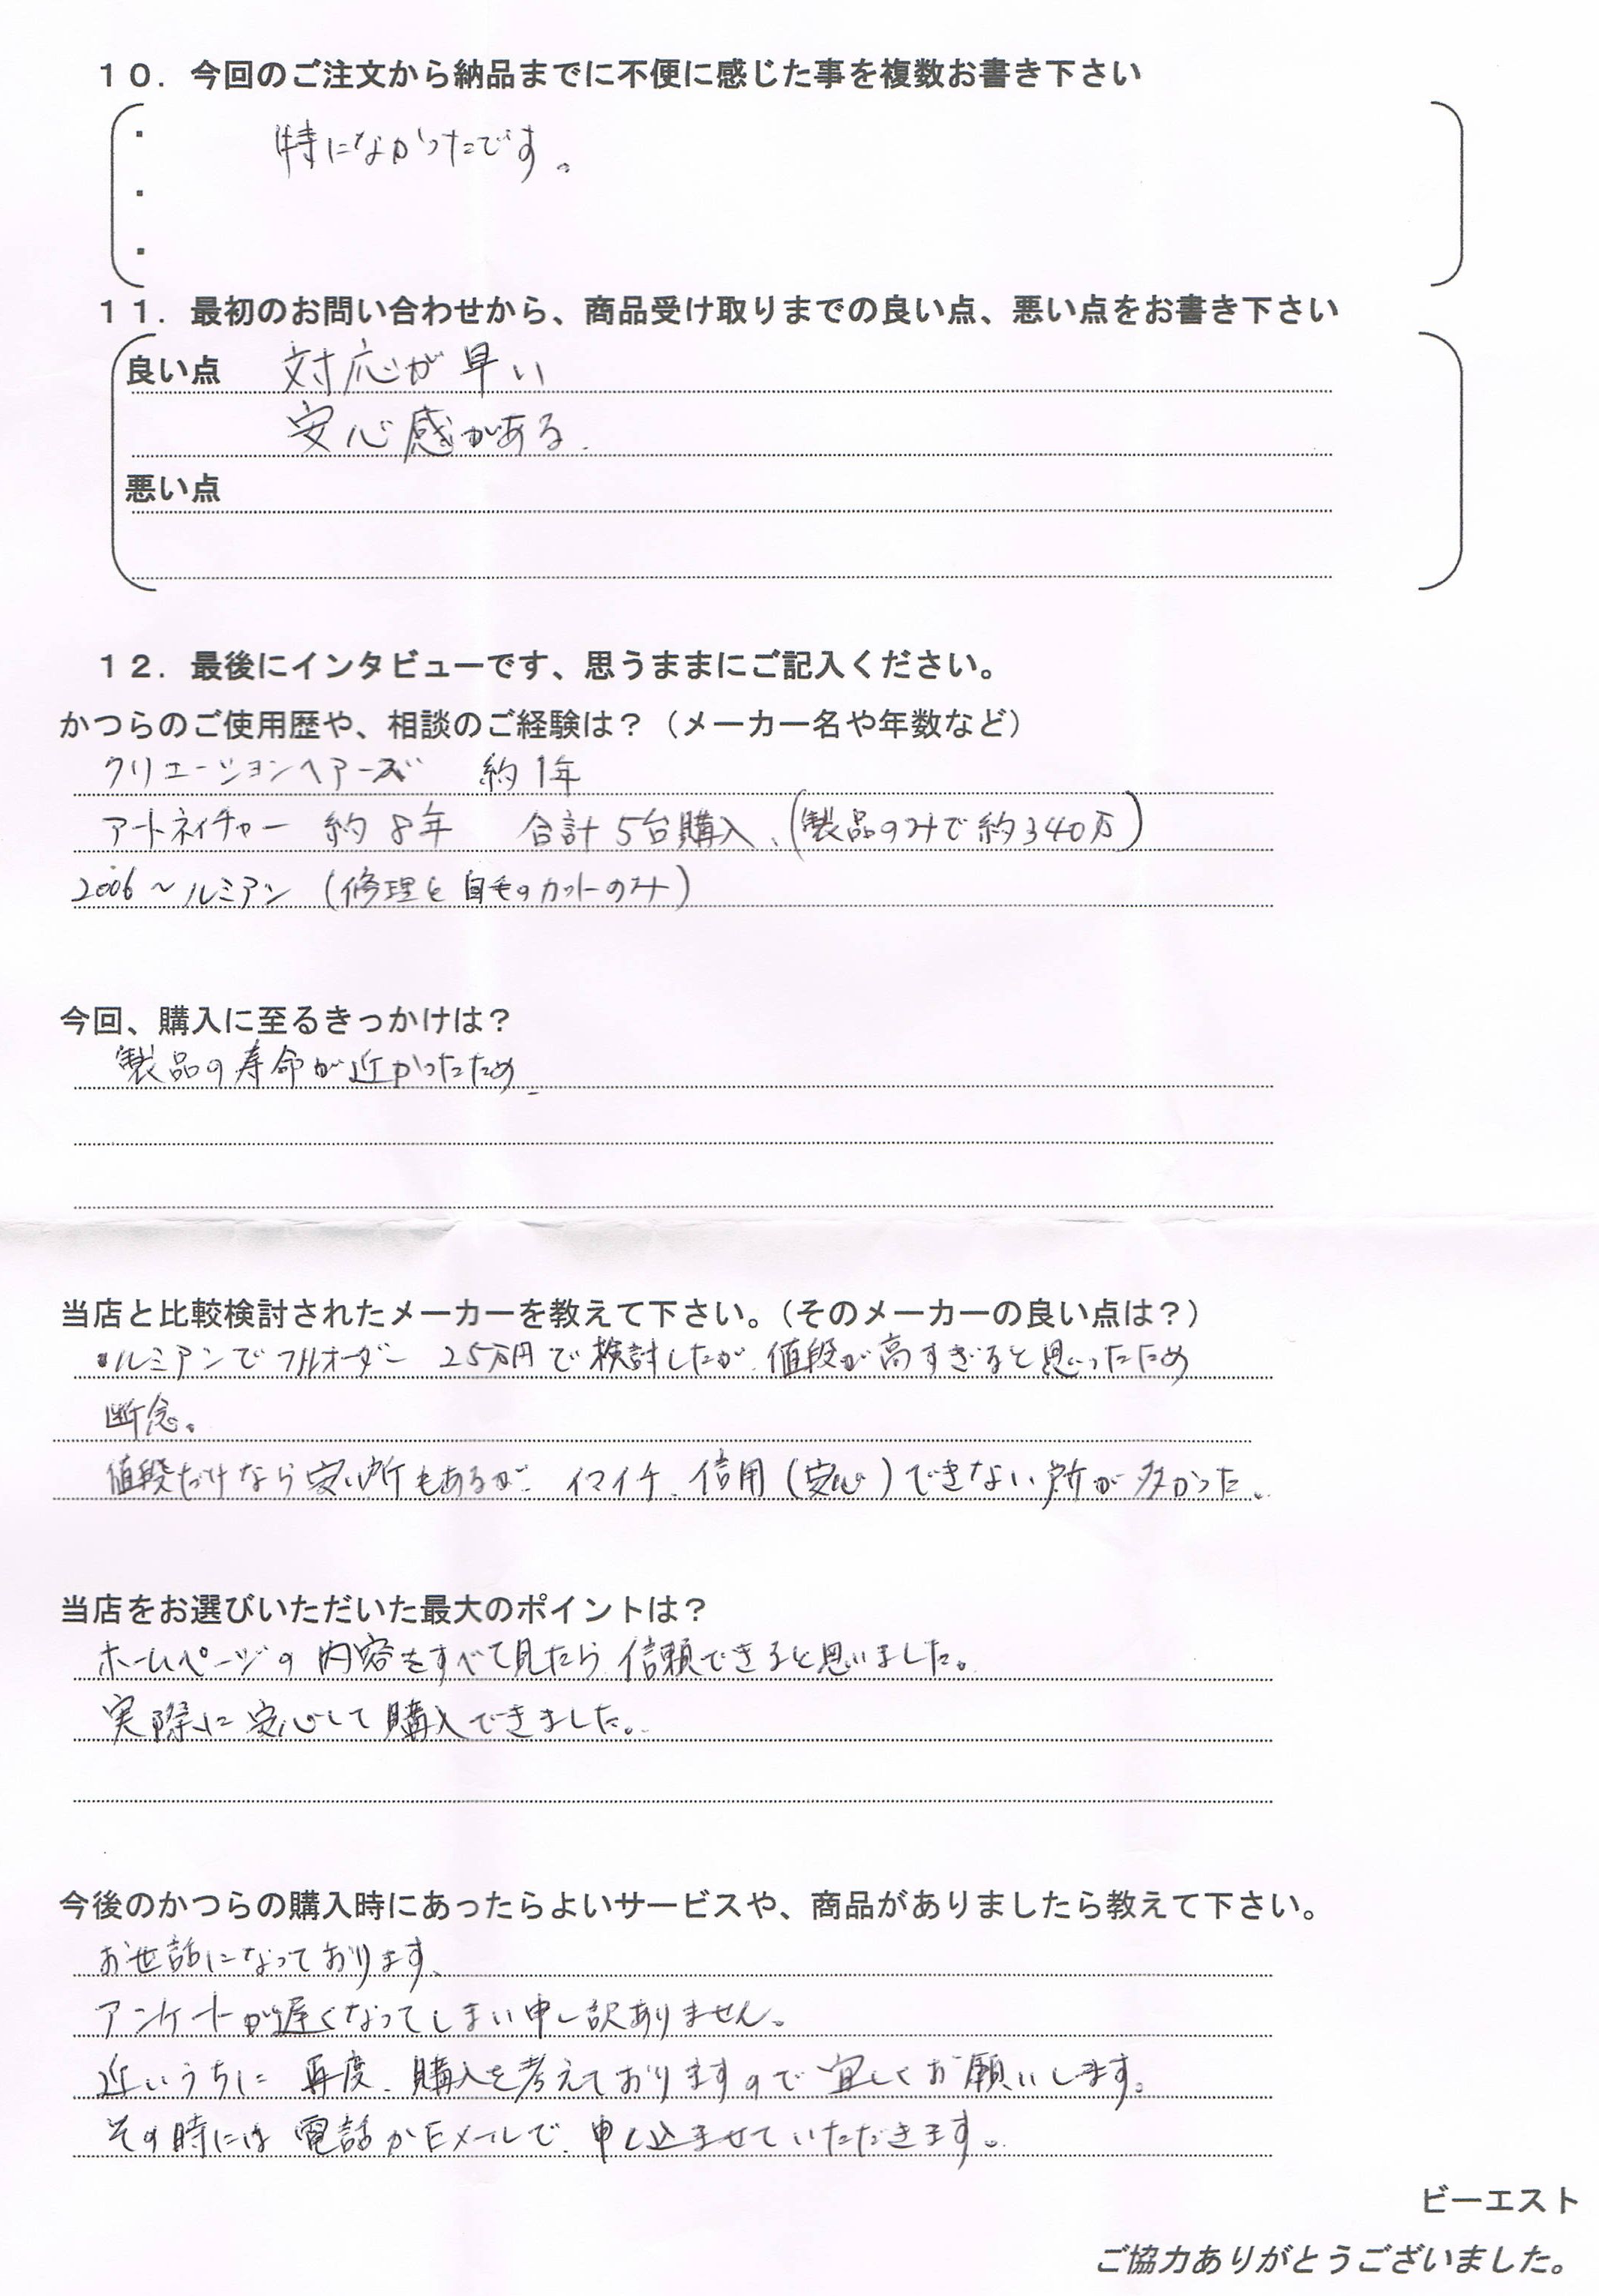 １０．今回のご注文から納品までに不便に感じた事を複数お書き下さい
・ 特になかったです。
・
・
１１．最初のお問い合わせから、商品受け取りまでの良い点、悪い点をお書き下さい
良い点 対応が早い
安心感がある.
悪い点
１２．最後にインタビューです、思うままにご記入ください。
かつらのご使用歴や、相談のご経験は？（メーカー名や年数など）
クリエーションヘアーズ 約1年
アートネイチャー 約8年 合計5台購入、(製品のみで約340万)
2006～ルミアン（修理と自毛のカットのみ）
今回、購入に至るきっかけは？
製品の寿命が近かったため.
当店と比較検討されたメーカーを教えて下さい。（そのメーカーの良い点は？）
・ルミアンでフルオーダー 25万円で検討したが、値段が高すぎると思ったため
断念。
値段だけなら安い所もあるが、イマイチ、信用（安心）できない所が多かった。
当店をお選びいただいた最大のポイントは？
ホームページの内容をすべて見たら、信頼できると思いました。
実際に安心して購入できました。
今後のかつらの購入時にあったらよいサービスや、商品がありましたら教えて下さい。
お世話になっております、
アンケートが遅くなってしまい申し訳ありません。
近いうちに再度、購入を考えておりますので宜しくお願いします。
その時には電話かEメールで、申し込ませていただきます。
ビーエスト
ご協力ありがとうございました。